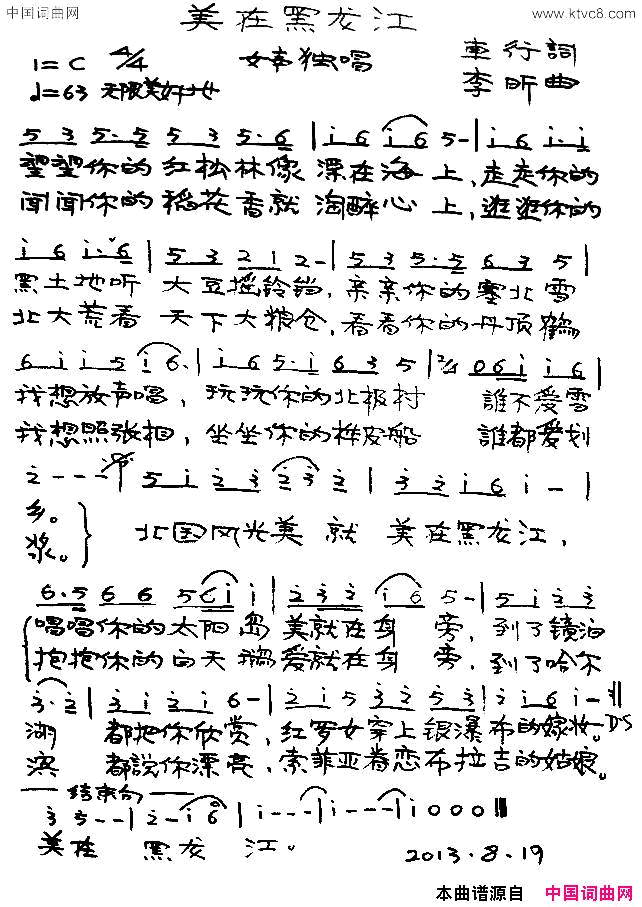 中国词曲网
www.ktvc8.com
美在黑龙江
1=C 4/4 女声独唱 車行詞
♩=63 无限美好地 李昕曲
5 3 5·5 5 3 5·6 | i 6 i 6 5- | i 6 i·i
望望你的红松林像漂在海上,走走你的
闻闻你的稻花香就淘醉心上,逛逛你的
i 6 i·6 | 5 3 2 1 2- | 5 3 5·5 6 3 5 |
黑土地听大豆摇铃铛,亲亲你的塞北雪
北大荒看天下大粮仓,看看你的丹顶鹤
6 i i 5 i 6· | i 6 5·i 6 3 5 | 2/4 0 6 i i 6 |
我想放声唱,玩玩你的北极村 誰不爱雪
我想照张相,坐坐你的桦皮船 誰都爱划
2 - - - | 5 i 2 3 2 3 2 | 3 2 i 6 i - |
乡。
浆。
北国风光美就美在黑龙江,
6·5 6 6 5 6 i i | 2 3 2 i 6 5- | 5 i 3 3
唱唱你的太阳岛美就在身旁,到了镜泊
抱抱你的白天鹅爱就在身旁,到了哈尔
3·2 | 3 i 2 i 6- | 2 i 5 3 2 5 3 | 2 i 6 i- :|| D.S
湖都把你欣赏,红罗女穿上银瀑布的嫁妆。
滨都說你漂亮,索菲亚眷恋布拉吉的姑娘。
结束句
3 5 - - | 2 - i 6 | i - - - | i - - - | i 0 0 0 ||
美在黑龙江。
2013.8.19
本曲谱源自 中国词曲网